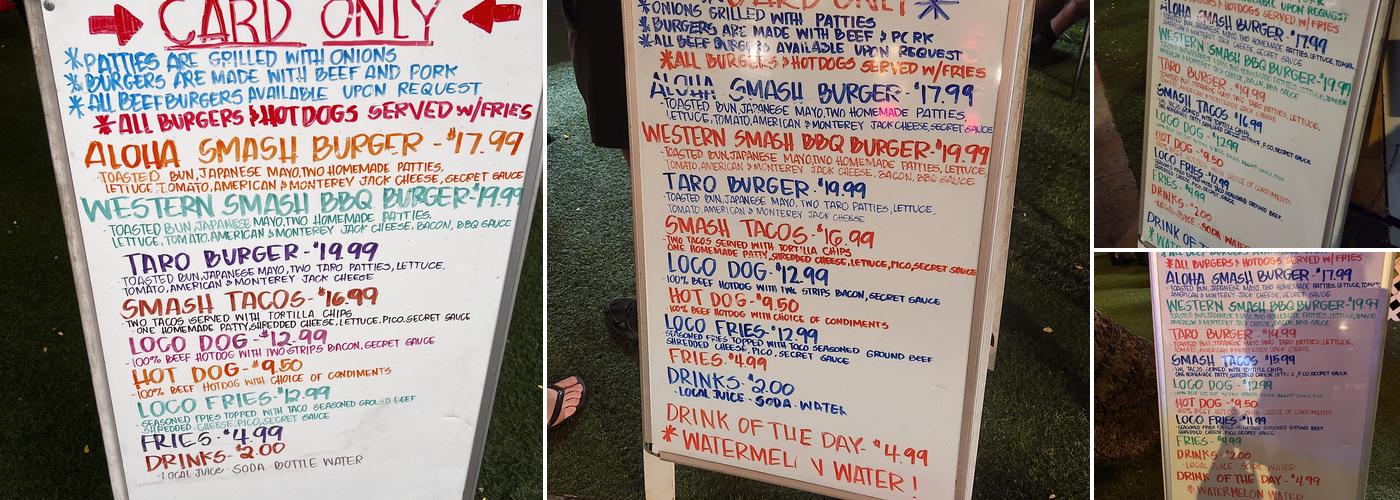 CARD ONLY
*PATTIES ARE GRILLED WITH ONIONS
*BURGERS ARE MADE WITH BEEF AND PORK
*ALL BEEF BURGERS AVAILABLE UPON REQUEST
*ALL BURGERS & HOTDOGS SERVED W/FRIES
ALOHA SMASH BURGER - $17.99
-TOASTED BUN, JAPANESE MAYO, TWO HOMEMADE PATTIES,
LETTUCE, TOMATO, AMERICAN & MONTEREY JACK CHEESE, SECRET SAUCE
WESTERN SMASH BBQ BURGER-$19.99
-TOASTED BUN, JAPANESE MAYO, TWO HOMEMADE PATTIES,
LETTUCE, TOMATO, AMERICAN & MONTEREY JACK CHEESE, BACON, BBQ SAUCE
TARO BURGER-$19.99
TOASTED BUN, JAPANESE MAYO, TWO TARO PATTIES, LETTUCE,
TOMATO, AMERICAN & MONTEREY JACK CHEESE
SMASH TACOS-$16.99
-TWO TACOS SERVED WITH TORTILLA CHIPS
-ONE HOMEMADE PATTY, SHREDDED CHEESE, LETTUCE, PICO, SECRET SAUCE
LOCO DOG-$12.99
-100% BEEF HOTDOG WITH TWO STRIPS BACON, SECRET SAUCE
HOT DOG-$9.50
-100% BEEF HOTDOG WITH CHOICE OF CONDIMENTS
LOCO FRIES-$12.99
-SEASONED FRIES TOPPED WITH TACO SEASONED GROUND BEEF
SHREDDED CHEESE, PICO, SECRET SAUCE
FRIES-$4.99
DRINKS-$2.00
-LOCAL JUICE - SODA BOTTLE WATER
CARD ONLY
*ONIONS GRILLED WITH PATTIES
*BURGERS ARE MADE WITH BEEF & PORK
*ALL BEEF BURGERS AVAILABLE UPON REQUEST
*ALL BURGERS & HOTDOGS SERVED W/FRIES
ALOHA SMASH BURGER-$17.99
-TOASTED BUN, JAPANESE MAYO, TWO HOMEMADE PATTIES,
LETTUCE, TOMATO, AMERICAN & MONTEREY JACK CHEESE, SECRET SAUCE
WESTERN SMASH BBQ BURGER-$19.99
-TOASTED BUN, JAPANESE MAYO, TWO HOMEMADE PATTIES, LETTUCE,
TOMATO, AMERICAN & MONTEREY JACK CHEESE, BACON, BBQ SAUCE
TARO BURGER-$19.99
-TOASTED BUN, JAPANESE MAYO, TWO TARO PATTIES, LETTUCE,
TOMATO, AMERICAN & MONTEREY JACK CHEESE
SMASH TACOS-$16.99
-TWO TACOS SERVED WITH TORTILLA CHIPS
ONE HOMEMADE PATTY, SHREDDED CHEESE, LETTUCE, PICO, SECRET SAUCE
LOCO DOG-$12.99
-100% BEEF HOTDOG WITH STRIPS BACON, SECRET SAUCE
HOT DOG-$9.50
-100% BEEF HOTDOG WITH CHOICE OF CONDIMENTS
LOCO FRIES-$12.99
SEASONED FRIES TOPPED WITH TACO SEASONED GROUND BEEF
SHREDDED CHEESE, PICO, SECRET SAUCE
FRIES-$4.99
DRINKS-$2.00
-LOCAL JUICE - SODA - WATER
DRINK OF THE DAY-$4.99
*WATERMEL N WATER!
UPON REQUEST
& HOTDOGS SERVED W/FRIES
ALOHA SMASH BURGER-$17.99
WESTERN SMASH BBQ BURGER-$19.99
TARO BURGER-$19.99
SMASH TACOS-$16.99
LOCO DOG-$12.99
HOT DOG-$9.50
WITH CHOICE OF CONDIMENTS
LOCO FRIES-$12.99
FRIES-$4.99
DRINKS-$2.00
-LOCAL JUICE - SODA
DRINK OF
*ALL BURGERS & HOTDOGS SERVED W/FRIES
ALOHA SMASH BURGER-$17.99
-TOASTED BUN, JAPANESE MAYO, TWO HOMEMADE PATTIES, LETTUCE,
AMERICAN & MONTEREY JACK CHEESE, SECRET SAUCE
WESTERN SMASH BBQ BURGER-$19.99
TARO BURGER-$19.99
SMASH TACOS-$15.99
ONE HOMEMADE PATTY, SHREDDED CHEESE, PICO, SECRET SAUCE
LOCO DOG-$12.99
HOT DOG-$9.50
100% BEEF HOTDOG WITH CHOICE OF CONDIMENTS
LOCO FRIES-$11.99
SEASONED FRIES TOPPED WITH TACO SEASONED GROUND BEEF,
SHREDDED CHEESE, PICO, SECRET SAUCE
FRIES-$4.99
DRINKS-$2.00
-LOCAL JUICE - SODA WATER
DRINK OF THE DAY-$4.99
*WATERMELON WATER